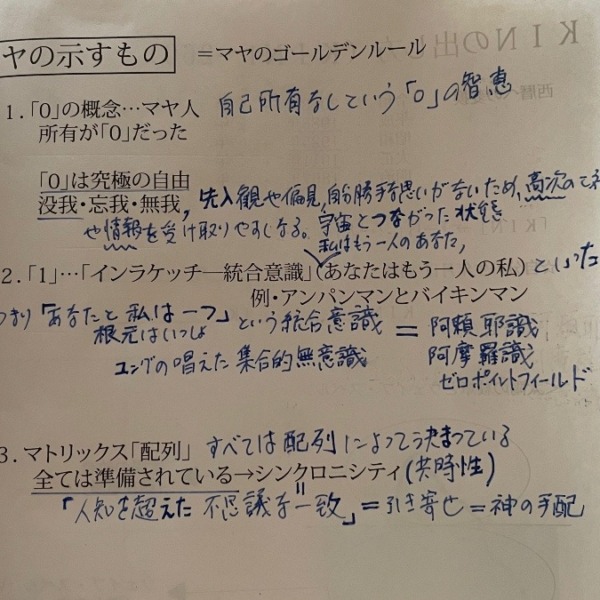 ヤの示すもの ＝マヤのゴールデンルール
1．「0」の概念…マヤ人 自己所有なしという「0」の智恵
所有が「0」だった
「0」は究極の自由
没我・忘我・無我，先入観や偏見，自分勝手な思いがないため，高次の
や情報を受け取りやすくなる。宇宙とつながった状態
私はもう一人のあなた，
2．「1」…「インラケッチ―統合意識」（あなたはもう一人の私）といった
例・アンパンマンとバイキンマン
つまり「あなたと私は一つ」という統合意識 ＝ 阿頼耶識
根元はいっしょ
ユングの唱えた集合的無意識 阿摩羅識
ゼロポイントフィールド
3．マトリックス「配列」 すべては配列によって決まっている
全ては準備されている→シンクロニシティ（共時性）
「人知を超えた不思議な一致」＝引き寄せ＝神の手配